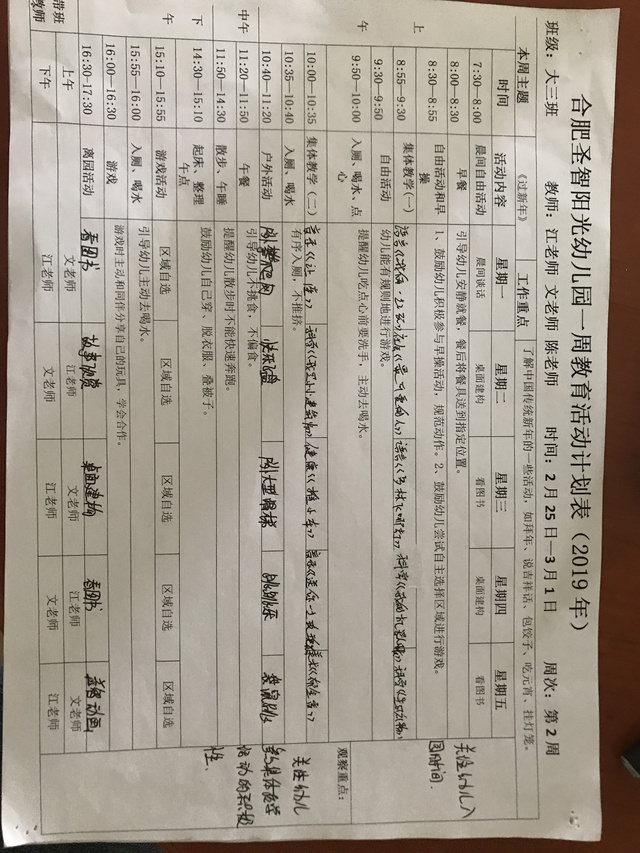 合肥圣智阳光幼儿园一周教育活动计划表（2019年）
班级：大三班 教师：江老师 文老师 陈老师 时间：2月25日—3月1日 周次：第2周
本周主题 《过新年》 工作重点 了解中国传统新年的一些活动，如拜年、说吉祥话、包饺子、吃元宵、挂灯笼。
时间 活动内容 星期一 星期二 星期三 星期四 星期五
上午
7:30—8:00 晨间自由活动 晨间谈话 桌面建构 看图书 桌面建构 看图书
8:00—8:30 早餐 引导幼儿安静就餐，餐后将餐具送到指定位置。
8:30—8:55 自由活动和早操 1、鼓励幼儿积极参与早操活动，规范动作。2、鼓励幼儿尝试自主选择区域进行游戏。
8:55—9:30 集体教学（一）
9:30—9:50 自由活动 幼儿能有规则地进行游戏。
9:50—10:00 入厕、喝水、点心 提醒幼儿吃点心前要洗手，主动去喝水。
10:00—10:35 集体教学（二）
10:35—10:40 入厕、喝水 有序入厕，不推挤。
10:40—11:20 户外活动
中午
11:20—11:50 午餐 引导幼儿不挑食、不偏食。
11:50—14:30 散步、午睡 提醒幼儿散步时不能快速奔跑。
下午
14:30—15:10 起床、整理午点 鼓励幼儿自己穿、脱衣服、叠被子。
15:10—15:55 游戏活动 区域自选 区域自选 区域自选 区域自选 区域自选
15:55—16:00 入厕、喝水 引导幼儿主动去喝水。
16:00—16:30 游戏 游戏时主动和同伴分享自己的玩具，学会合作。
16:30-17:30 离园活动 看图书 故事欣赏 桌面建构 看图书 益智动画
带班教师 上午 文老师 江老师 文老师 江老师 文老师
下午 江老师 文老师 江老师 文老师 江老师
观察重点：
关注幼儿入园时间.
关注幼儿